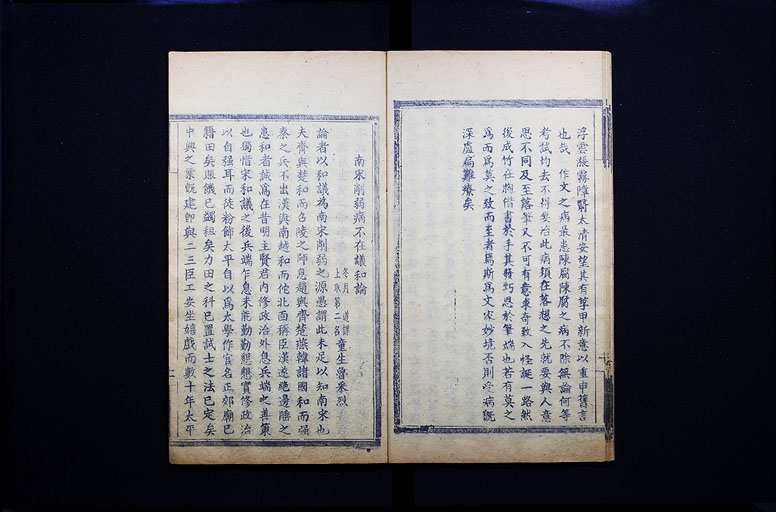 浮雲漲霧障翳太清安望其有孚甲新意以重申舊言
也哉 作文之病最患陳腐陳腐之病不除無論何等
考試均去不得要治此病須在落想之先就要與人意
思不同及至落筆又不可有意乖奇致入怪誕一路然
後成竹在胸借書於手其騁巧思於筆端也若有莫之
為而為莫之致而至者焉斯為文家妙境否則受病既
深虛扁難療矣
南宋削弱病不在議和論
冬月 道課
上取第二名
童生曾采烈
論者以和議為南宋削弱之源愚謂此未足以知南宋也
夫齊與楚和而召陵之師息趙與齊楚燕韓諸國和而强
秦之兵不出漢與南越和而佗北面稱臣漢遂絕邊陲之
患和者誠為在昔明主賢君内修政治外息兵端之善策
也獨惜宋和議之後兵端乍息未能勤勤懇懇實修政治
以自强耳而徒粉飾太平自以為太學作官名正郊廟已
籍田矣賬饑已蠲租矣力田之科已置試士之法已定矣
中興之業旣建卽與二三臣工安坐嬉戲而數十年太平